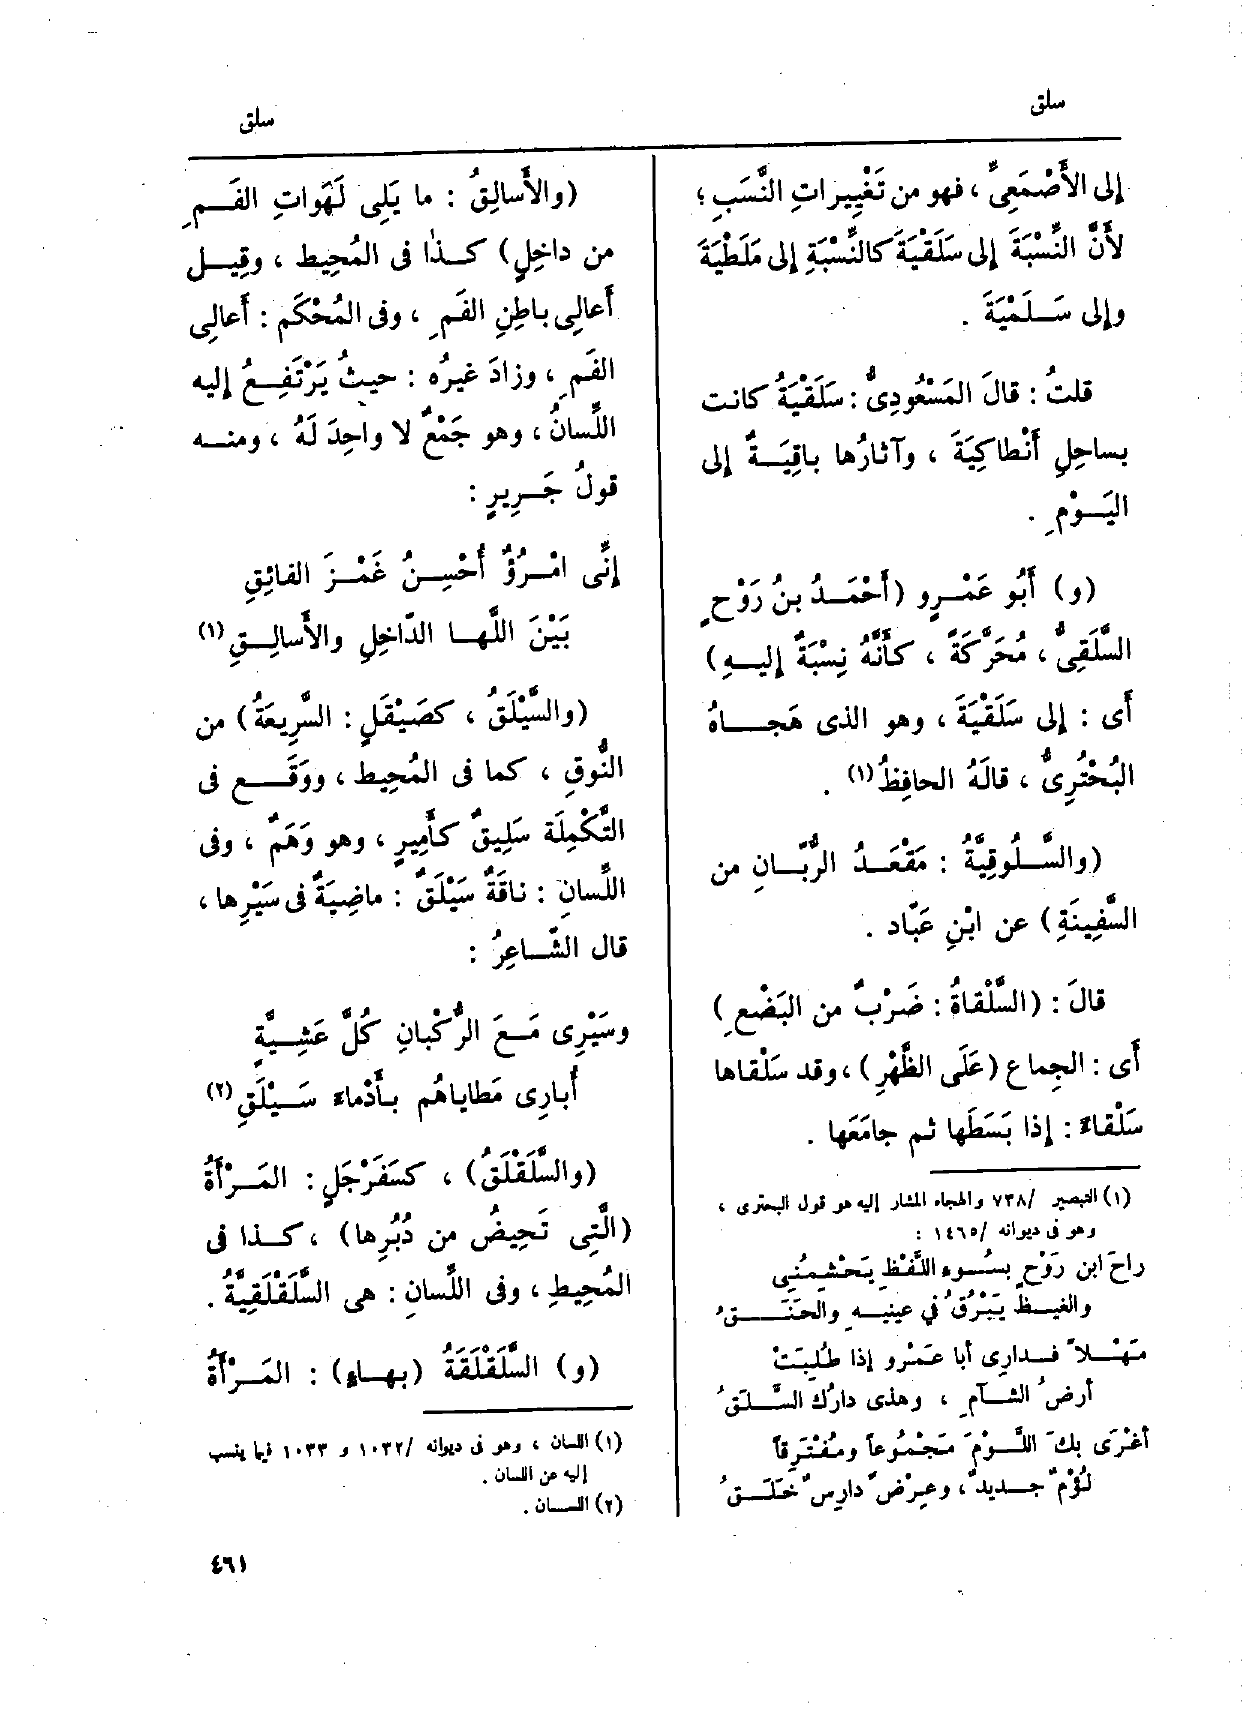 سلق
سلق
إلى الأَصْمَعِىِّ ، فهو من تَغْيِيراتِ النَّسَبِ ؛
لأَنَّ النِّسْبَةَ إلى سَلَقْيَةَ كالنِّسْبَةِ إلى مَلَطْيَةَ
وإلى سَلَمْيَةَ .
قلتُ : قالَ المَسْعُودِىُّ : سَلَقْيَةُ كانت
بساحِلِ أَنْطاكِيَةَ ، وآثارُها باقِيَةٌ إلى
اليَوْمِ .
(و) أَبُو عَمْرٍو (أَحْمَدُ بنُ رَوْحٍ
السَّلَقِىُّ ، مُحَرَّكَةً ، كأَنَّهُ نِسْبَةٌ إليهِ)
أَى : إلى سَلَقْيَةَ ، وهو الذى هَجاهُ
البُحْتُرِىُّ ، قالَهُ الحافِظُ(١) .
(والسَّلُوقِيَّةُ : مَقْعَدُ الرُّبّانِ من
السَّفِينَةِ) عن ابْنِ عَبّاد .
قالَ : (السَّلْقاةُ : ضَرْبٌ من البَضْعِ)
أَى : الجِماعِ (عَلَى الظَّهْرِ) ، وقد سَلْقاها
سَلْقاءً : إذا بَسَطَها ثم جامَعَها .
(١) التبصير /٧٣٨ والهجاء المشار إليه هو قول البحترى ،
وهو فى ديوانه /١٤٦٥ :
راحَ ابن رَوْحٍ بسُوء اللَّفْظِ يَحْشِمُنِي
والغيظ يَبْرُقُ في عينيه والحَنَقُ
مَهْلاً فدارِى أبا عَمْرو إذا طُلِبَتْ
أرضُ الشآمِ ، وهذى دارُك السَّلَقُ
أغْرَى بكَ اللَّوْمَ مَجْمُوعاً ومُفْتَرِقاً
لُؤْمٌ جديدٌ ، وعِرْضٌ دارِسٌ خَلَقُ
(والأَسالِقُ : ما يَلِى لَهَواتِ الفَمِ
من داخِلٍ) كذٰا فى المُحِيط ، وقِيل
أَعالِى باطِنِ الفَمِ ، وفى المُحْكَم : أَعالِى
الفَمِ ، وزادَ غيرُه : حيثُ يَرْتَفِعُ إليه
اللِّسانُ ، وهو جَمْعٌ لا واحِدَ لَهُ ، ومنه
قولُ جَرِيرٍ :
إِنِّى امْرُؤٌ أُحْسِنُ غَمْزَ الفائِقِ
بَيْنَ اللَّها الدّاخِلِ والأَسالِقِ(١)
(والسَّيْلَقُ ، كصَيْقَلٍ : السَّرِيعَةُ) من
النُّوقِ ، كما فى المُحِيط ، ووَقَع فى
التَّكْمِلَة سَلِيقٌ كأَمِيرٍ ، وهو وَهَمٌ ، وفى
اللِّسانِ : ناقَةٌ سَيْلَقٌ : ماضِيَةٌ فى سَيْرِها ،
قال الشّاعِرُ :
وسَيْرِى مَعَ الرُّكْبانِ كُلَّ عَشِيَّةٍ
أُبارِى مَطاياهُم بأَدْماءَ سَيْلَقِ(٢)
(والسَّلَقْلَقُ) ، كسَفَرْجَلٍ : المَرْأَةُ
(الَّتِى تَحِيضُ من دُبُرِها) ، كذا فى
المُحِيطِ ، وفى اللِّسانِ : هى السَّلَقْلَقِيَّةُ .
(و) السَّلَقْلَقَةُ (بهاءٍ) : المَرْأَةُ
(١) اللسان ، وهو فى ديوانه /١٠٣٢ و ١٠٣٣ فيما ينسب
إليه عن اللسان .
(٢) اللسان .
٤٦١